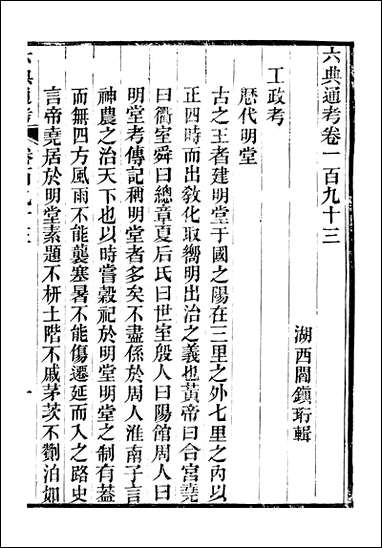 六典通考卷一百九十三
湖西閻鎮珩輯
工政考
歷代明堂
古之王者建明堂于國之陽在三里之外七里之內以
正四時而出敎化取嚮明出治之義也黃帝曰合宮堯
曰衢室舜曰總章夏后氏曰世室殷人曰陽館周人曰
明堂考傳記稱明堂者多矣不盡係於周人淮南子言
神農之治天下也以時嘗穀祀於明堂明堂之制有蓋
而無四方風雨不能襲寒暑不能傷遷延而入之路史
言帝堯居於明堂素題不枅土階不戚茅茨不劗泊如
六典通考
卷百九十三
一